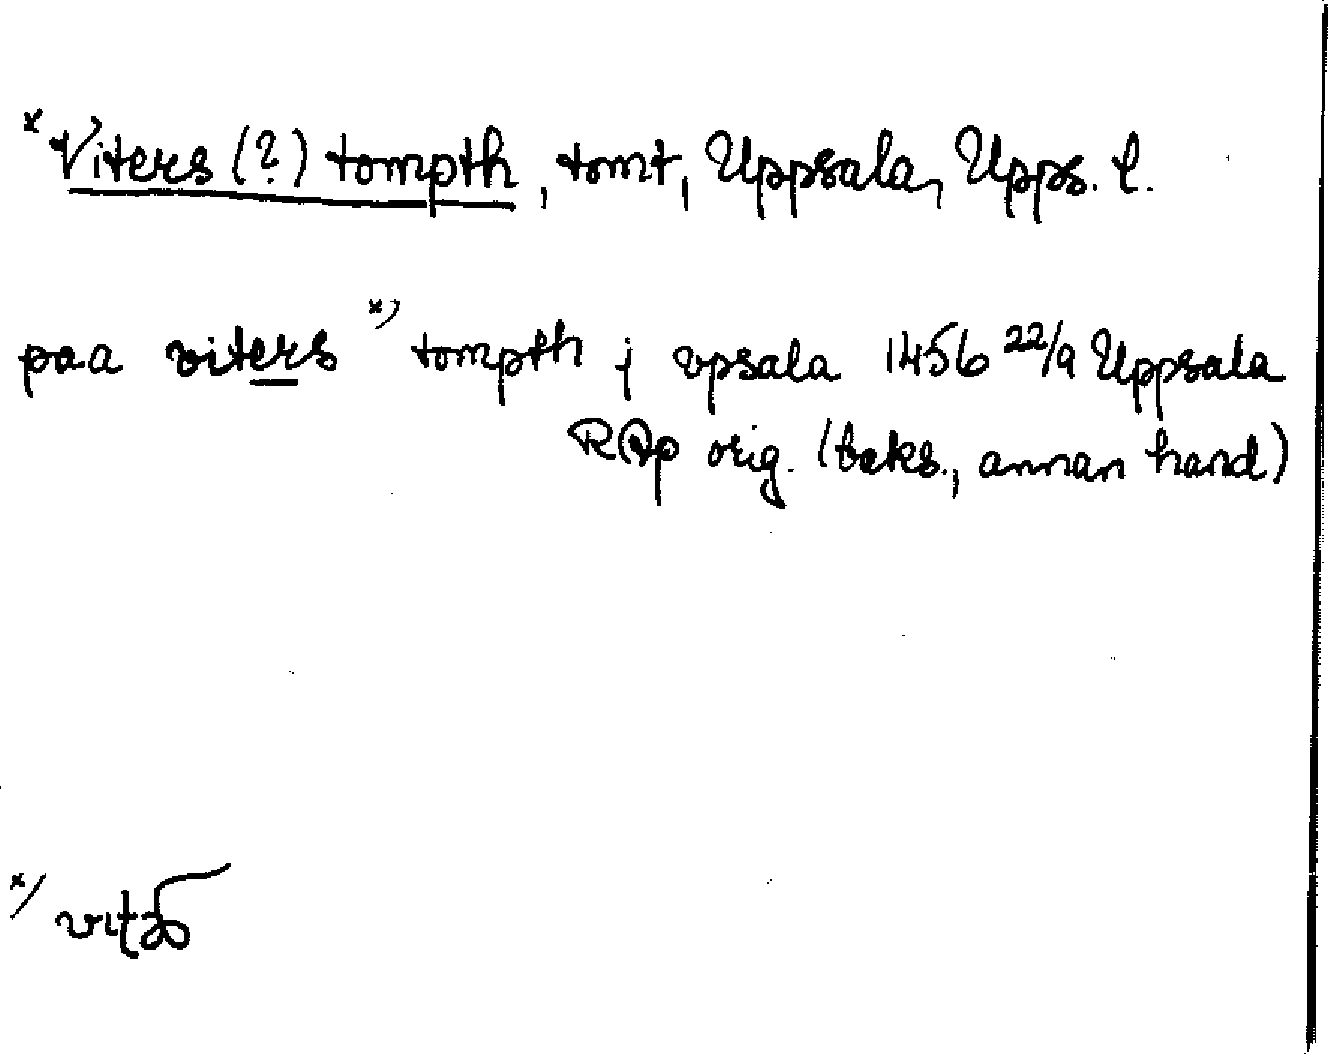 * Viters (?) tompth, tomt, Uppsala, Upps. l.
paa viters *) tompth j vpsala 1456 22/9 Uppsala
RAp orig. (baks., annan hand)
*) vit